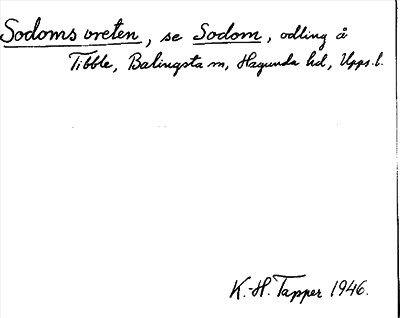 Sodoms vreten, se Sodom, odling å
Tibble, Balingsta sn, Hagunda hd, Upps. l.
K.-H. Tapper 1946.